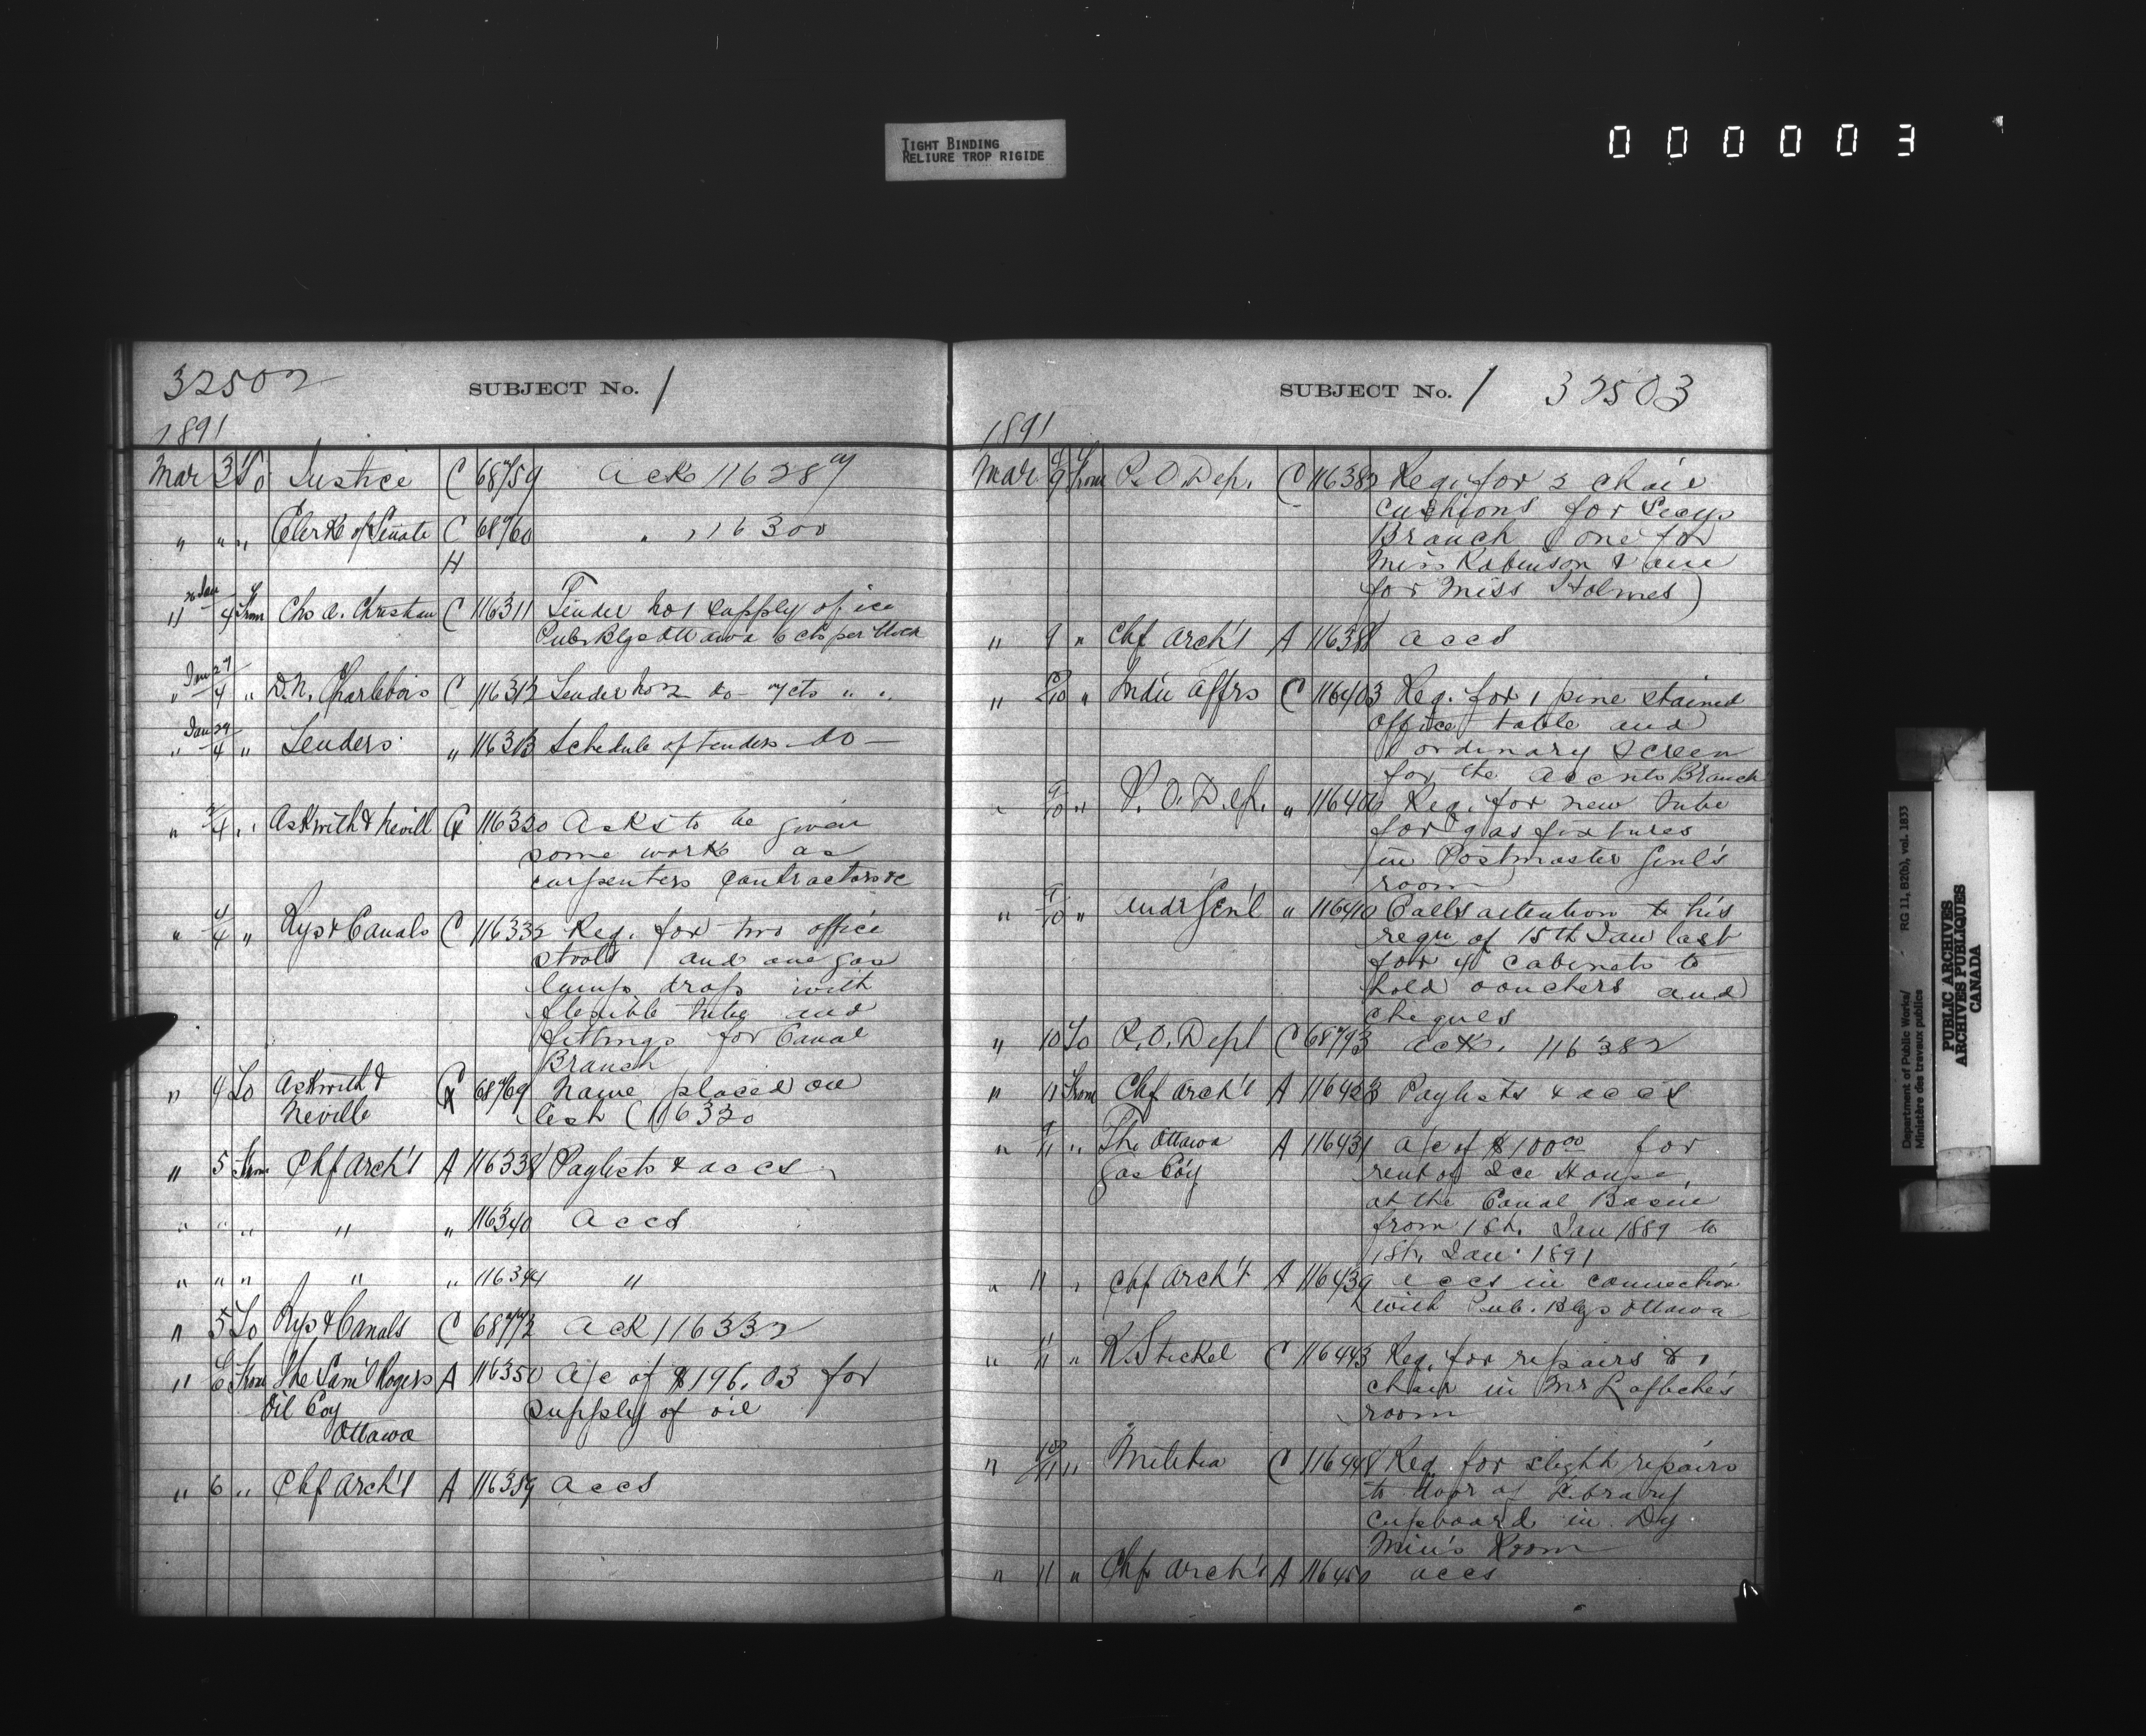 TIGHT BINDING
RELIURE TROP RIGIDE
000003
32502 SUBJECT No. 1
1891
Mar 3 To Justice C 68759 Ack 116287
" " " Clerk of Senate C 68760 " 116300
H
26 Jan
" 4 From Chs A. Christian C 116311 Tender No 1 supply of ice
Pub. Blgs Ottawa 6 cts per block
Jan 27
" 4 " D. N. Charlebois C 116312 Tender No 2 do 7 cts " "
Jan 29
" 4 " Tenders " 116313 Schedule of tenders do
" 3/4 " Askwith & Nevill G 116320 Asks to be given
some work as
carpenters contractors &c
" 4/4 " Rys & Canals C 116332 Req. for two office
stools and one gas
lamp drop with
flexible tube and
fittings for Canal
Branch
" 4 To Askwith & G 68769 Name placed on
Neville list (116320
" 5 From Chf Arch't A 116338 Paylists & accs
" " " " " 116340 Accs
" " " " " 116344 "
" 5 To Rys & Canals C 68772 Ack 116332
" 6 From The Sam'l Rogers A 116350 A/c of $196.03 for
Oil Coy supply of oil
Ottawa
" 6 " Chf Arch't A 116359 Accs
SUBJECT No. 1 32503
1891
Mar 9 From P.O. Dep. C 116382 Req. for 2 chair
cushions for Secys
Branch (one for
Miss Robinson & one
for Miss Holmes)
" 9 " Chf Arch't A 116388 accs
" 10 " Indn Affrs C 116403 Req. for 1 pine stained
office table and
1 ordinary screen
for the Accnts Branch
" 9/10 " P.O. Dep. " 116406 Req. for new tube
for gas fixtures
in Postmaster Genl's
room
" 9/10 " Audr Gen'l " 116410 Calls attention to his
requ of 15th Jan last
for 4 cabinets to
hold vouchers and
cheques
" 10 To P.O. Dept C 68793 ack. 116382
" 11 From Chf Arch't A 116423 Paylists & accs
" 9/11 " The Ottawa A 116431 a/c of $100.00 for
Gas Coy rent of Ice House
at the Canal Basin
from 1st. Jan 1889 to
1st. Jan. 1891
" 11 " Chf Arch't A 116439 accs in connection
with Pub. Blgs Ottawa
" 11/11 " R. Steckel C 116443 Req. for repairs to 1
chair in Mr Lafleche's
room
" 10/11 " Militia C 116448 Req. for slight repairs
to door of Library
cupboard in Dy
Min's Room
" 11 " Chf Arch't A 116450 accs
Department of Public Works/ RG 11, B2(b), vol. 1833
Ministère des travaux publics
PUBLIC ARCHIVES
ARCHIVES PUBLIQUES
CANADA